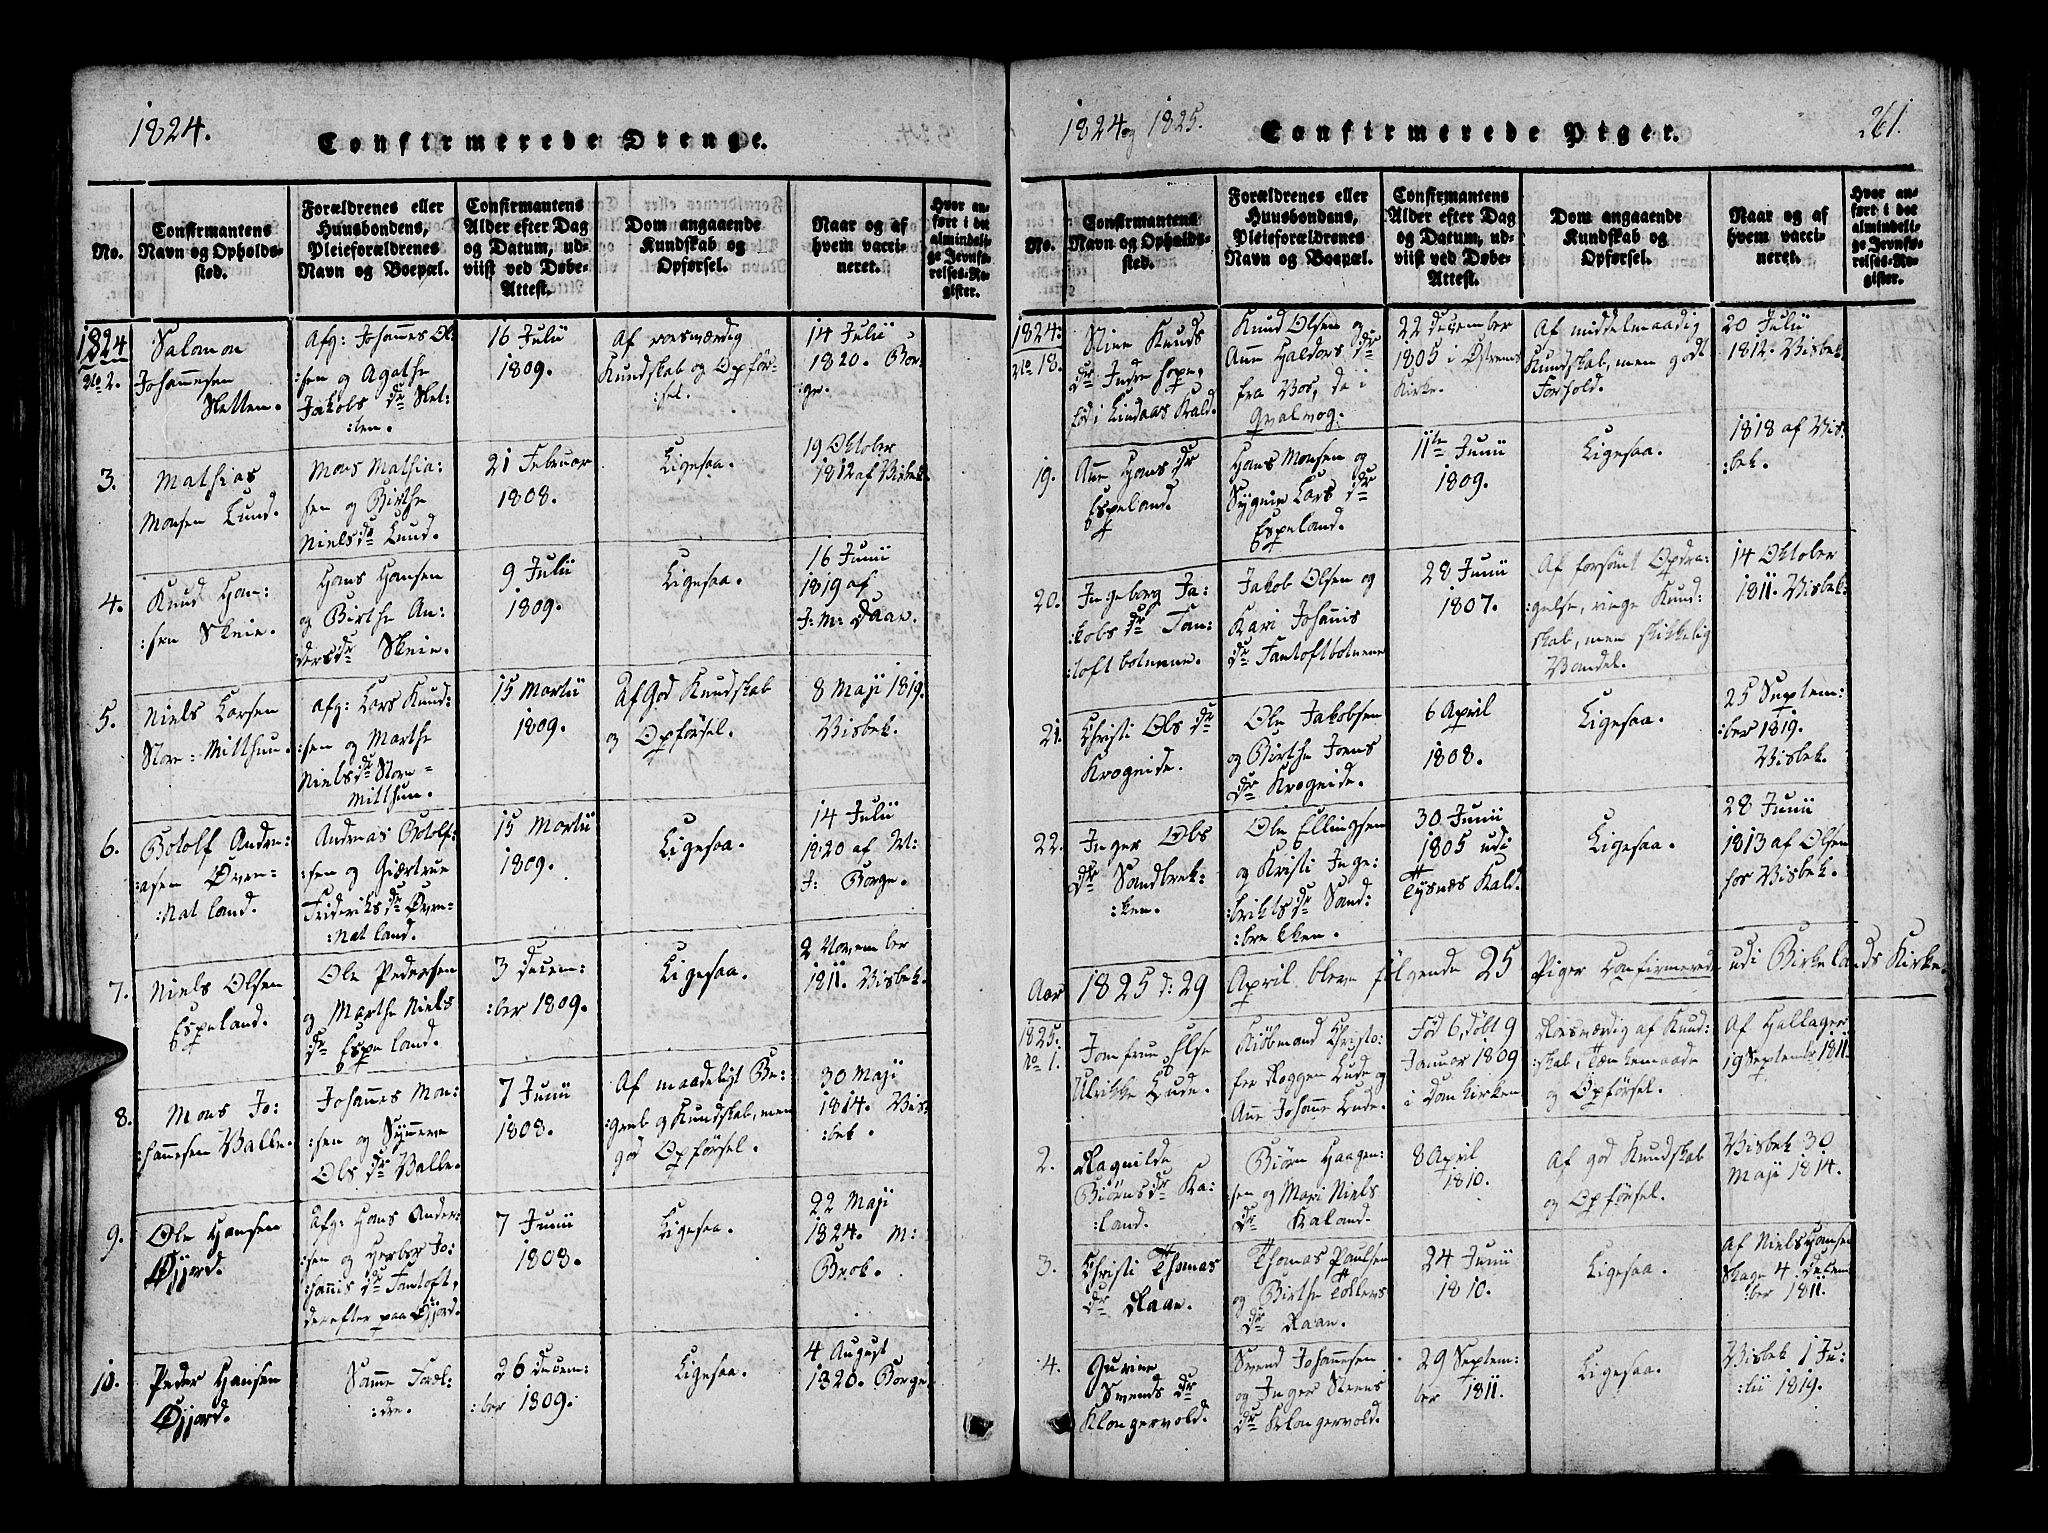 1824.
Confirmerede Drenge.
No.
Confirmantens
Navn og Opholds-
sted.
Forældrenes eller
Huusbondens,
Pleieforældrenes
Navn og Boepæl.
Confirmantens
Alder efter Dag
og Datum, ud-
viist ved Døbe-
Attest.
Dom angaaende
Kundskab og
Opførsel.
Naar og af
hvem vacci-
neret.
Hvor an-
ført i det
almindeli-
ge Jevnfø-
relses-Re-
gister.
1824
No 2.
Salomon
Johannesen
Sletten.
Afg: Johannes Ol:
:sen og Agathe
Jakobs dr Slet:
:ten.
16 Julii
1809.
Af roesværdig
Kundskab og Opfør-
:sel.
14 Julii
1820. Bor-
:ge.
3.
Mathias
Monsen Lund.
Mons Mathia:
:sen og Birthe
Niels dr Lund.
21 Februar
1808.
Ligesaa.
19 Oktober
1812 af Visbek.
4.
Knud Han:
:sen Skeie.
Hans Hansen
og Birthe An:
ders dr Skeie.
9 Julii
1809.
Ligesaa.
16 Junii
1819 af
J: M: Daae.
5.
Niels Larsen
Store-Milthun.
Afg: Lars Knud:
:sen og Marthe
Niels dr Store-
Milthun.
15 Martii
1809.
Af God Kundskab
og Opførsel.
8 Maji 1819.
Visbek.
6.
Botolf Andre:
:asen Øvre-
:Natland.
Andreas Botolf:
:sen og Giærtrue
Frideriks dr Øvre-
:Natland.
15 Martii
1809.
Ligesaa.
14 Julii
1820 af M:
J: Borge.
7.
Niels Olsen
Espeland.
Ole Pedersen
og Marthe Niels
dr Espeland.
3 Decem:
:ber 1809.
Ligesaa.
2 November
1811. Visbek.
8.
Mons Jo:
:hannesen Valle.
Johannes Mon:
:sen og Synneve
Ols dr Valle.
7 Junii
1808.
Af maadeligt Be:
:greb og Kundskab, men
god Opførsel.
30 Maji
1814. Vis:
:bek.
9.
Ole Hansen
Øjjord.
Afg: Hans Ander:
:sen og Herbor Jo:
:hannis dr Fantoft,
derefter paa Øjjord.
7 Junii
1808.
Ligesaa.
22 Maji
1824. M:
Brok.
10.
Peder Hansen
Øjjord.
Samme Foræl:
:dre.
26 Decem:
:ber 1809.
Ligesaa.
4 August
1820. Borge.
1824 og 1825.
Confirmerede Piger.
261.
No.
Confirmantens
Navn og Opholds-
sted.
Forældrenes eller
Huusbondens,
Pleieforældrenes
Navn og Boepæl.
Confirmantens
Alder efter Dag
og Datum, ud-
viist ved Døbe-
Attest.
Dom angaaende
Kundskab og
Opførsel.
Naar og af
hvem vacci-
neret.
Hvor an-
ført i det
almindeli-
ge Jevnfø-
relses-Re-
gister.
1824:
No 18.
Stine Knuds
dr Indre Hope,
fød i Lindaas Kald.
Knud Olsen og
Anne Haldors dr
fra Vos, de i
Qvalvog.
22 December
1805 i
Kirke.
Af middelmaadig
Kundskab, men godt
Forhold.
20 Julii
1812. Visbek
19.
Ane Hans dr
Espeland.
Hans Monsen og
Sygnie Lars dr
Espeland.
11te Junii
1809.
Ligesaa.
1818 af Vis:
:bek.
20.
Ingeborg Ja:
:kobs dr Fan:
:toftbotnene.
Jakob Olsen og
Kari Johanis
dr Fantoftbotnene
28 Junii
1807.
Af forsømt Opdra:
:gelse, ringe Kund:
skab, men skikkelig
Vandel.
14 Oktober
1811. Visbek.
21.
Christi Ols dr
Krogeide.
Ole Jakobsen
og Birthe Joens
dr Krogeide.
6 April
1808.
Ligesaa.
25 Septem:
:ber 1819.
Visbek.
22.
Inger Ols
dr Sandbrek:
:ken.
Ole Ellingsen
og Kristi Inge:
:brikts dr Sand:
:brekken.
30 Junii
1805 udi
Tysnæs Kald.
Ligesaa.
28 Junii
1813 af Olsen
hos Visbek.
Aar 1825 d: 29 April bleve følgende 25 Piger Confirmerede udi Birkelands Kirke.
1825:
No 1.
Jomfrue Else
Ulrikke Lude.
Kiøbmand Christo:
fer Roggen Lude og
Ane Johanne Lude.
Fød 6, døbt 9
Januar 1809
i Domkirken
Roesværdig af Kund:
:skab, Tænkemaade
og Opførsel.
Af Hallager
19 September 1811.
2.
Ragnilde
Biørns dr Ka:
:land.
Biørn Haagen:
:sen og Mari Niels
dr Kaland.
8 April
1810.
Af god Kundskab
og Opførsel.
Visbek 30
Maji 1814.
3.
Christi Thomas
dr Raae.
Thomas Paulsen
og Birthe Tollers
dr Raae.
24 Junii
1810.
Ligesaa.
Af Niels Hansen
Skage 4 Decem
:ber 1811.
4.
Gurine
Svends dr
Klongervold.
Svend Johannesen
og Inger Steens
dr Klongervold.
29 Septem:
ber 1811.
Ligesaa.
Visbek 1 Ju:
:lii 1819.